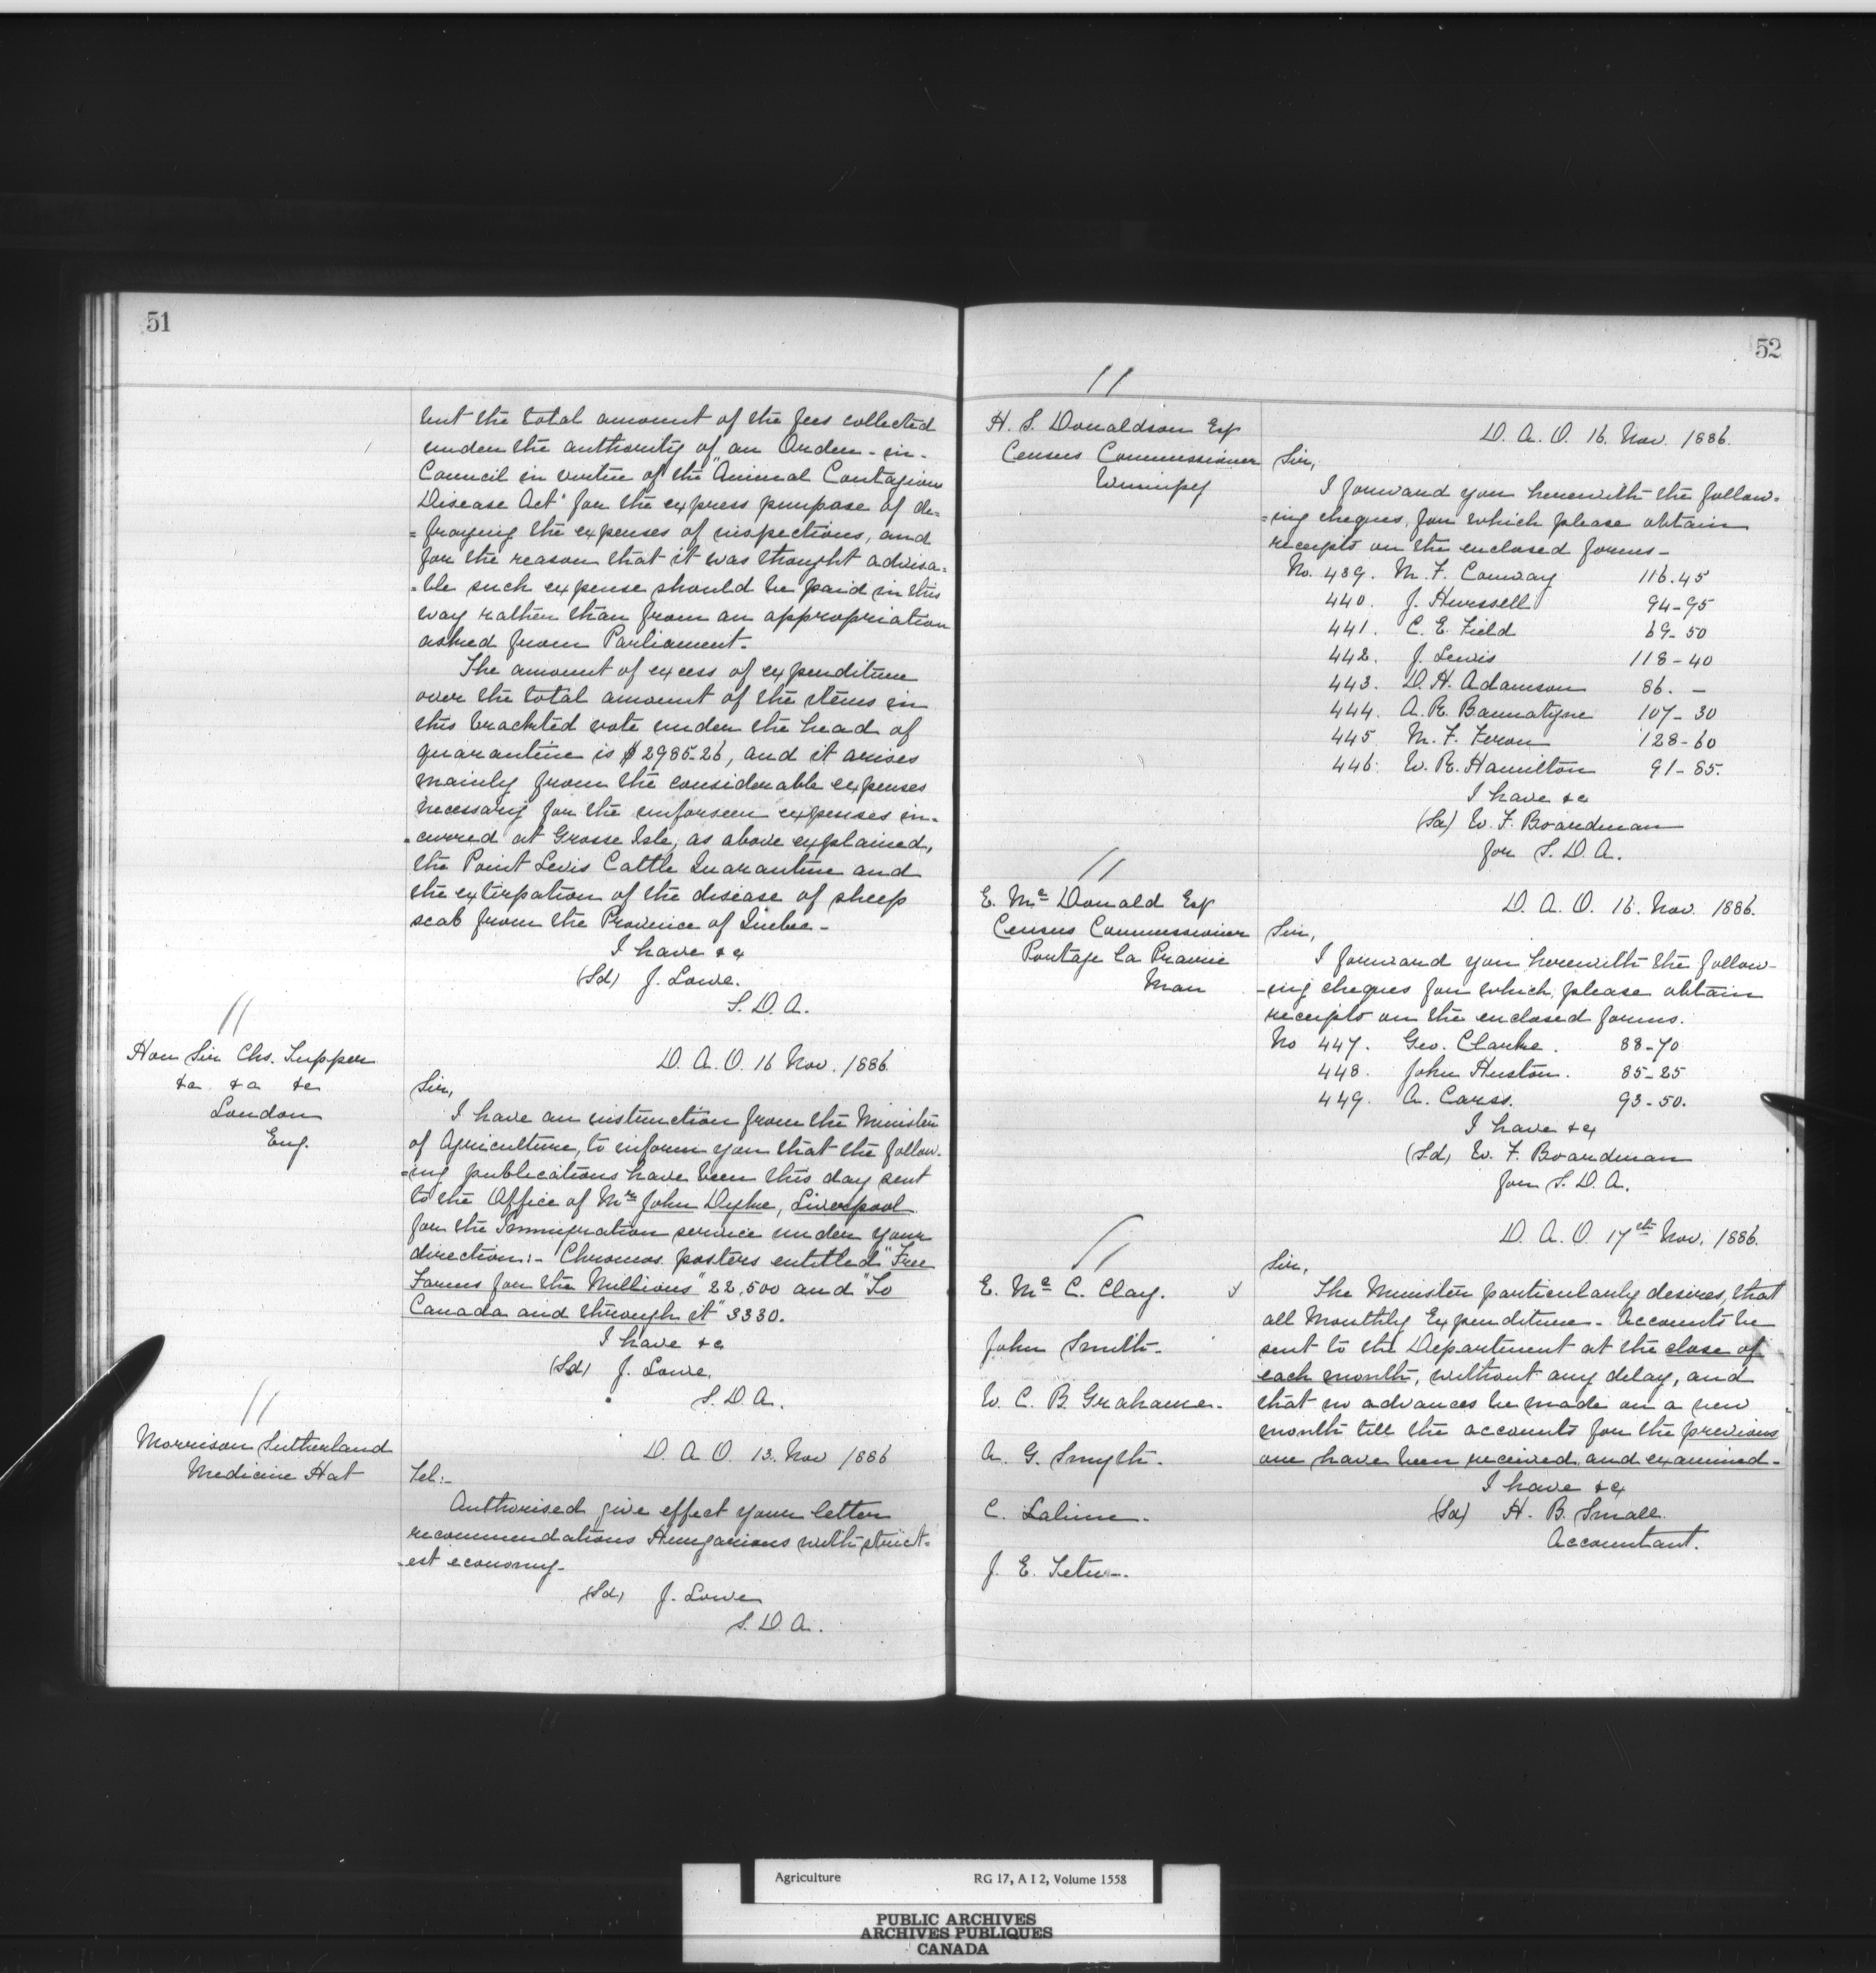 51
but the total amount of the fees collected
under the authority of an Order-in-
Council in virtue of the "Animal Contagious
Disease Act" for the express purpose of de=
=fraying the expenses of inspections, and
for the reason that it was thought advisa=
=ble such expense should be paid in this
way rather than from an appropriation
asked from Parliament.
The amount of excess of expenditure
over the total amount of the items in
this bracketed vote under the head of
quarantine is $2985-26, and it arises
mainly from the considerable expenses
necessary for the unforseen expenses in-
=curred at Grosse Isle, as above explained,
the Point Levis Cattle Quarantine and
the extirpation of the disease of sheep
scab from the Province of Quebec-
I have &c
(Sd) J. Lowe.
S. D. A.
//
Hon Sir Chs. Tupper
&c &c &c
London
Eng.
D. A. O. 16 Nov. 1886
Sir,
I have an instruction from the Minister
of Agriculture, to inform you that the follow-
=ing publications have been this day sent
to the Office of Mr John Dyke, Liverpool
for the Immigration service under your
direction:- Chromos posters entitled "Free
Farms for the Millions" 22,500 and "To
Canada and through it" 3330.
I have &c
(Sd) J. Lowe.
S. D. A.
//
Morrison Sutherland
Medicine Hat
D. A. O. 13. Nov 1886
Tel:-
Authorised give effect your letter
recommendations Hungarians with strict-
-est economy-
(Sd) J. Lowe
S. D. A.
52
//
H. S. Donaldson Esq
Census Commissioner
Winnipeg
D. A. O. 16. Nov. 1886.
Sir,
I forward you herewith the follow-
=ing cheques, for which please obtain
receipts on the enclosed forms-
No. 439. M. F. Conway 116.45
440. J. Hurssell 94-95
441. C. E. Field 69-50
442. J. Lewis 118-40
443. D. H. Adamson 86. -
444. A. R. Bannatyne 107-30
445 M. F. Feron 128-60
446. W. R. Hamilton 91-85.
I have &c
(Sd) W. F. Boardman
for S. D. A.
//
E. Mc Donald Esq
Census Commissioner
Portage la Prairie
Man
D. A. O. 16. Nov. 1886.
Sir,
I forward you herewith the follow-
-ing cheques for which, please obtain
receipts on the enclosed forms.
No 447. Geo. Clarke. 88-70
448. John Huston. 85-25
449. A. Carss. 93-50.
I have &c
(Sd) W. F. Boardman
for S. D. A.
//
E. Mc C. Clay.
John Smith-
W. C. B. Grahame-
A. G. Smyth-
C. Lalime-
J. E. Tetu-
D. A. O. 17th Nov. 1886.
Sir,
The Minister particularly desires, that
all Monthly Expenditure-Accounts be
sent to the Department at the close of
each month, without any delay, and
that no advances be made on a new
month till the accounts for the previous
one have been received and examined-
I have &c
(Sd) H. B. Small.
Accountant.
Agriculture RG 17, A I 2, Volume 1558
PUBLIC ARCHIVES
ARCHIVES PUBLIQUES
CANADA